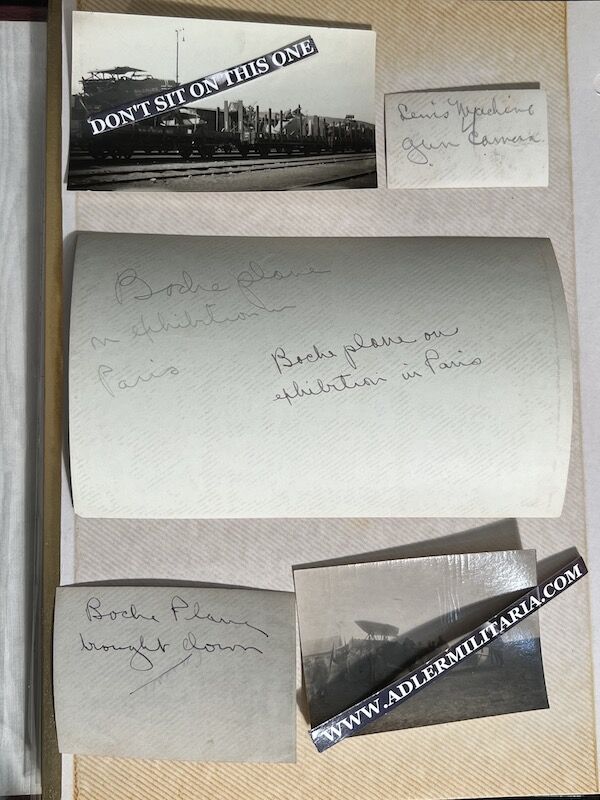 DON'T SIT ON THIS ONE
Lewis Machine
gun Camera
Boche plane
on exhibition in
Paris
Boche plane on
exhibition in Paris
Boche Plane
brought down
WWW.ADLERMILITARIA.COM